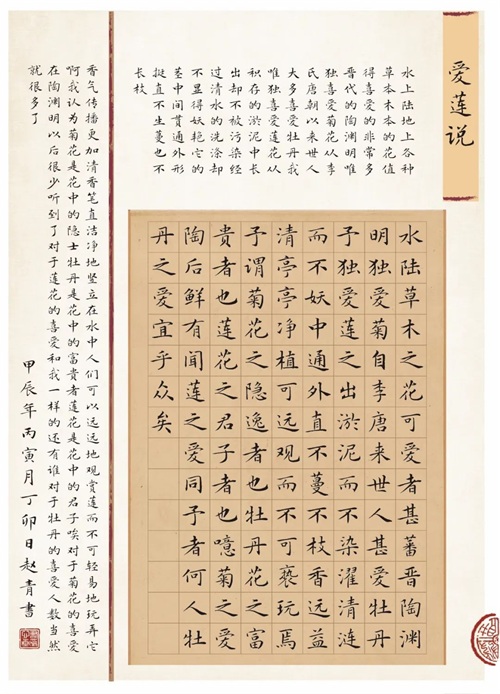 爱莲说
水上陆地上各种
草本木本的花值
得喜爱的非常多
晋代的陶渊明唯
独喜爱菊花从李
氏唐朝以来世人
大多喜爱牡丹我
唯独喜爱莲花从
积存的淤泥中长
出却不被污染经
过清水的洗涤却
不显得妖艳它的
茎中间贯通外形
挺直不生蔓也不
长枝
水陆草木之花可爱者甚蕃晋陶渊
明独爱菊自李唐来世人甚爱牡丹
予独爱莲之出淤泥而不染濯清涟
而不妖中通外直不蔓不枝香远益
清亭亭净植可远观而不可亵玩焉
予谓菊花之隐逸者也牡丹花之富
貴者也莲花之君子者也噫菊之爱
陶后鲜有闻莲之爱同予者何人牡
丹之爱宜乎众矣
香气传播更加清香笔直洁净地坚立在水中人们可以远远地观赏莲而不可轻易地玩弄它
啊我认为菊花是花中的隐士牡丹是花中的富貴者莲花是花中的君子唉对于菊花的喜爱
在陶渊明以后很少听到了对于莲花的喜爱和我一样的还有谁对于牡丹的喜爱人数当然
就很多了
甲辰年丙寅月丁卯日赵青書